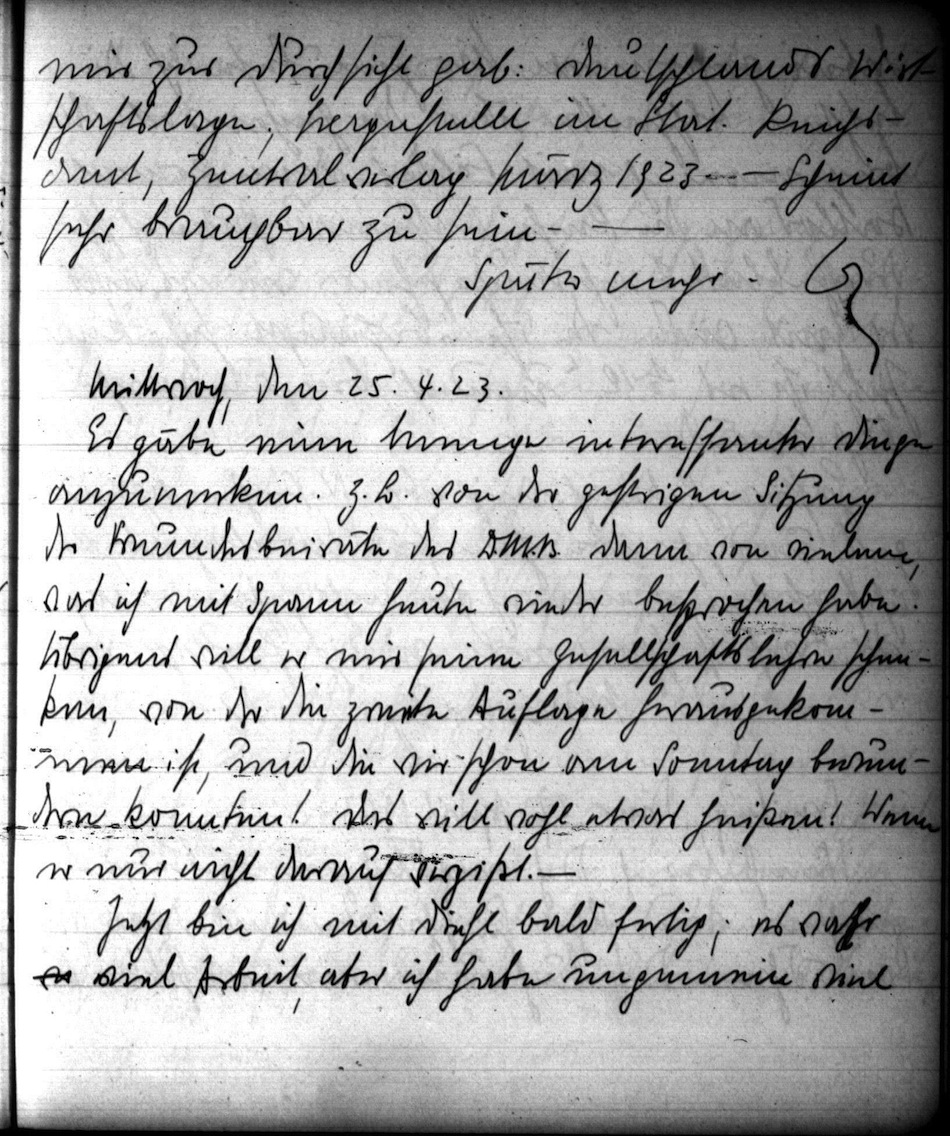 mir zur Durchsicht gab: Deutschlands Wirt-
schaftslage, hergestellt im Stat. Reichs-
amt, Zentralverlag März 1923 — — Scheint
sehr brauchbar zu sein. —
Später mehr.
Mittwoch, den 25. 4. 23.
Es gäbe eine Menge interessanter Dinge
anzumerken. z. B. von der gestrigen Sitzung
des Freundesbeirates des dann von vielem,
was ich mit Spann heute wieder besprochen habe.
Übrigens will er mir seine Gesellschaftslehre schen-
ken, von der die zweite Auflage herausgekom-
men ist, und die wir schon am Sonntag bewun-
dern konnten! Das will wohl etwas heißen! Wenn
er nur nicht darauf vergißt. —
Jetzt bin ich mit Diehl bald fertig; es war
viel Arbeit, aber ich habe ungemein viel